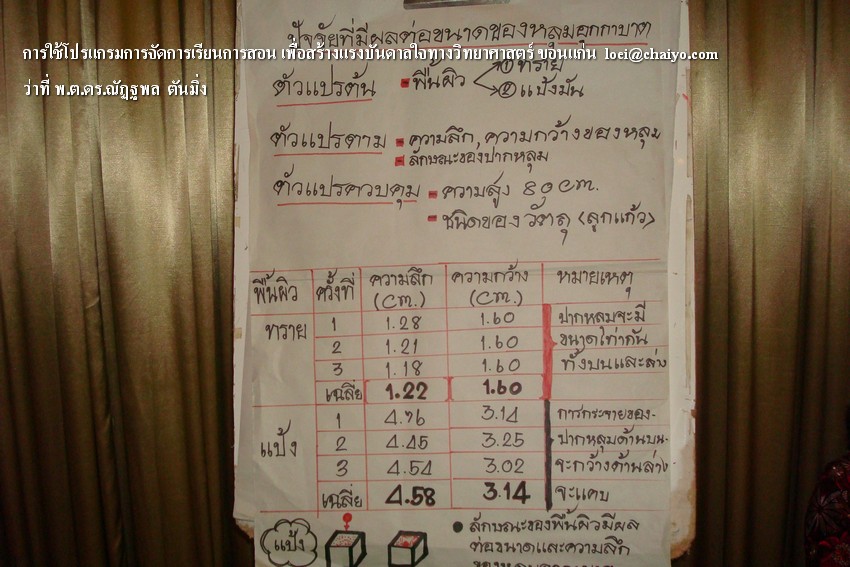 ปัจจัยที่มีผลต่อขนาดของหลุมอุกกาบาต
การใช้โปรแกรมการจัดการเรียนการสอน เพื่อสร้างแรงบันดาลใจทางวิทยาศาสตร์ ขอนแก่น loei@chaiyo.com
ว่าที่ พ.ต.ดร.ณัฏฐพล ตันมิ่ง
ตัวแปรต้น - พื้นผิว ① ทราย
② แป้งมัน
ตัวแปรตาม - ความลึก, ความกว้างของหลุม
- ลักษณะของปากหลุม
ตัวแปรควบคุม - ความสูง 80 cm.
- ชนิดของวัตถุ (ลูกแก้ว)
พื้นผิว ครั้งที่ ความลึก (cm.) ความกว้าง (cm.) หมายเหตุ
ทราย 1 1.28 1.60 ปากหลุมจะมี
2 1.21 1.60 ขนาดเท่ากัน
3 1.18 1.60 ทั้งบนและล่าง
เฉลี่ย 1.22 1.60
แป้ง 1 4.76 3.14 การกระจายของ
2 4.45 3.25 ปากหลุมด้านบน
3 4.54 3.02 จะกว้างด้านล่าง
เฉลี่ย 4.58 3.14 จะแคบ
แป้ง
• ลักษณะของพื้นผิวมีผล
ต่อขนาดและความลึก